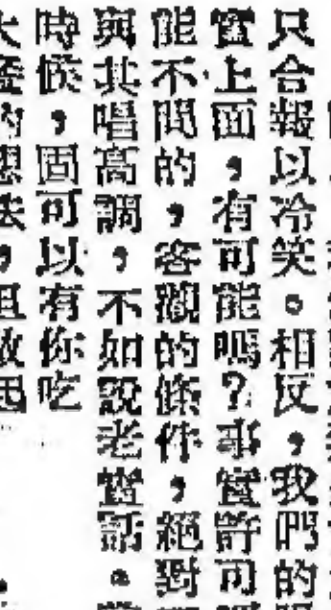 只合報以冷笑。相反,我們的
實上面,有可能嗎?事實許可
能不問的,客觀的條件,絕對
與其唱高調,不如說老實話。
時候,固可以有你吃